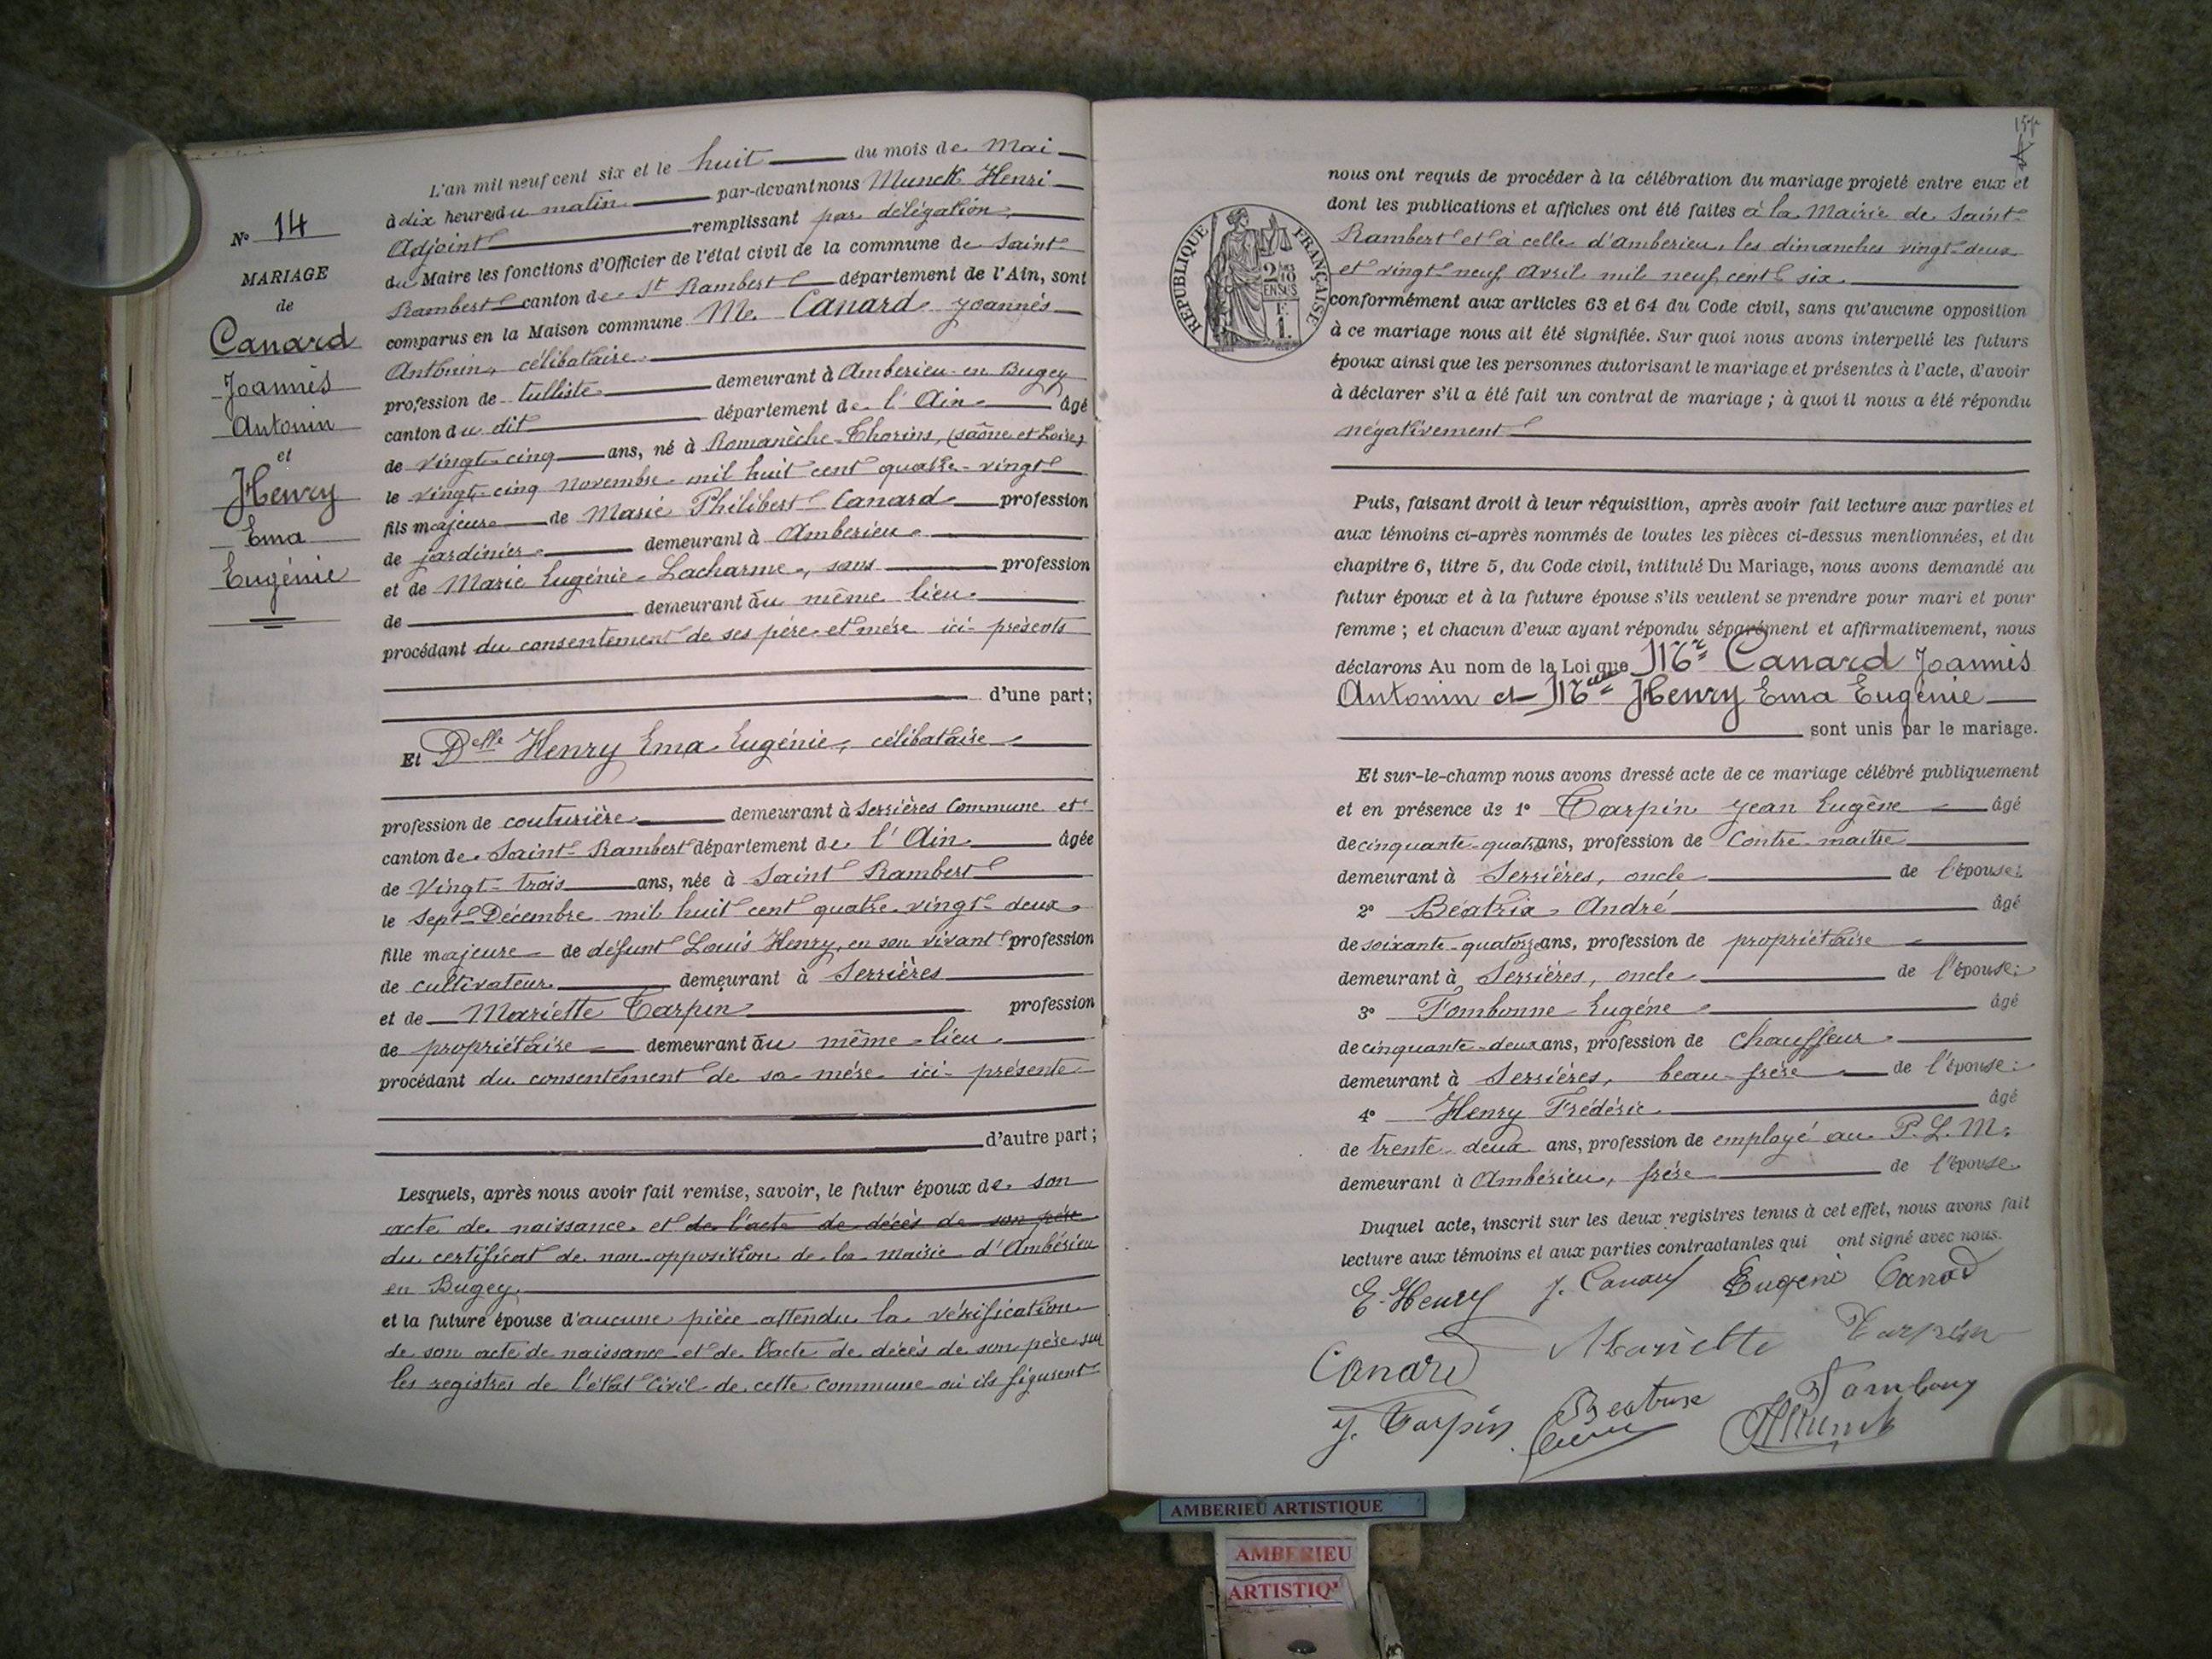 N° 14
MARIAGE
de
Canard
Joannès
Antonin
et
Henry
Ema
Eugénie
L'an mil neuf cent six et le huit du mois de Mai
à dix heures du matin par-devant nous Munck Henri
Adjoint remplissant par délégation
du Maire les fonctions d'Officier de l'état civil de la commune de Saint
Rambert canton de St Rambert département de l'Ain, sont
comparus en la Maison commune M. Canard Joannès
Antonin, célibataire
profession de tulliste demeurant à Ambérieu-en-Bugey
canton du dit département de l'Ain âgé
de vingt-cinq ans, né à Romanèche-Thorins, (Saône et Loire)
le vingt-cinq Novembre mil huit cent quatre-vingt
fils majeur de Marie Philibert Canard profession
de jardinier demeurant à Ambérieu
et de Marie Eugénie Lacharme, sans profession
de demeurant au même lieu
procédant du consentement de ses père et mère ici présents
d'une part;
Et Delle Henry Ema Eugénie, célibataire
profession de couturière demeurant à Serrières Commune et
canton de Saint-Rambert département de l'Ain âgée
de Vingt-trois ans, née à Saint Rambert
le Sept Décembre mil huit cent quatre-vingt-deux
fille majeure de défunt Louis Henry, en son vivant profession
de cultivateur demeurant à Serrières
et de Mariette Tarpin profession
de propriétaire demeurant au même lieu
procédant du consentement de sa mère ici présente
d'autre part;
Lesquels, après nous avoir fait remise, savoir, le futur époux de son
acte de naissance et de l'acte de décès de son père
du certificat de non opposition de la mairie d'Ambérieu
en Bugey,
et la future épouse d'aucune pièce attendu la vérification
de son acte de naissance et de l'acte de décès de son père sur
les registres de l'état civil de cette commune où ils figurent
nous ont requis de procéder à la célébration du mariage projeté entre eux et
dont les publications et affiches ont été faites à la Mairie de Saint
Rambert et à celle d'Ambérieu, les dimanches vingt-deux
et vingt neuf Avril mil neuf cent six.
REPUBLIQUE FRANÇAISE
2/10 EN SUS
1 F.
conformément aux articles 63 et 64 du Code civil, sans qu'aucune opposition
à ce mariage nous ait été signifiée. Sur quoi nous avons interpellé les futurs
époux ainsi que les personnes autorisant le mariage et présentes à l'acte, d'avoir
à déclarer s'il a été fait un contrat de mariage; à quoi il nous a été répondu
négativement
Puis, faisant droit à leur réquisition, après avoir fait lecture aux parties et
aux témoins ci-après nommés de toutes les pièces ci-dessus mentionnées, et du
chapitre 6, titre 5, du Code civil, intitulé Du Mariage, nous avons demandé au
futur époux et à la future épouse s'ils veulent se prendre pour mari et pour
femme; et chacun d'eux ayant répondu séparément et affirmativement, nous
déclarons Au nom de la Loi que Mr Canard Joannès
Antonin et Melle Henry Ema Eugénie
sont unis par le mariage.
Et sur-le-champ nous avons dressé acte de ce mariage célébré publiquement
et en présence de 1° Tarpin Jean Eugène âgé
de cinquante-quatre ans, profession de Contre-maître
demeurant à Serrières, oncle de l'épouse;
2° Béatrix André âgé
de soixante-quatorze ans, profession de propriétaire
demeurant à Serrières, oncle de l'épouse;
3° Fombonne Eugène âgé
de cinquante-deux ans, profession de chauffeur
demeurant à Serrières, beau-frère de l'épouse;
4° Henry Frédéric âgé
de trente-deux ans, profession de employé au P. L. M.
demeurant à Ambérieu, frère de l'épouse
Duquel acte, inscrit sur les deux registres tenus à cet effet, nous avons fait
lecture aux témoins et aux parties contractantes qui ont signé avec nous.
E. Henry J. Canard Eugéni Canard
Canard Mariette Tarpin
J. Tarpin Beatrix Fombonne
HMunck
AMBERIEU ARTISTIQUE
AMBERIEU
ARTISTIQ